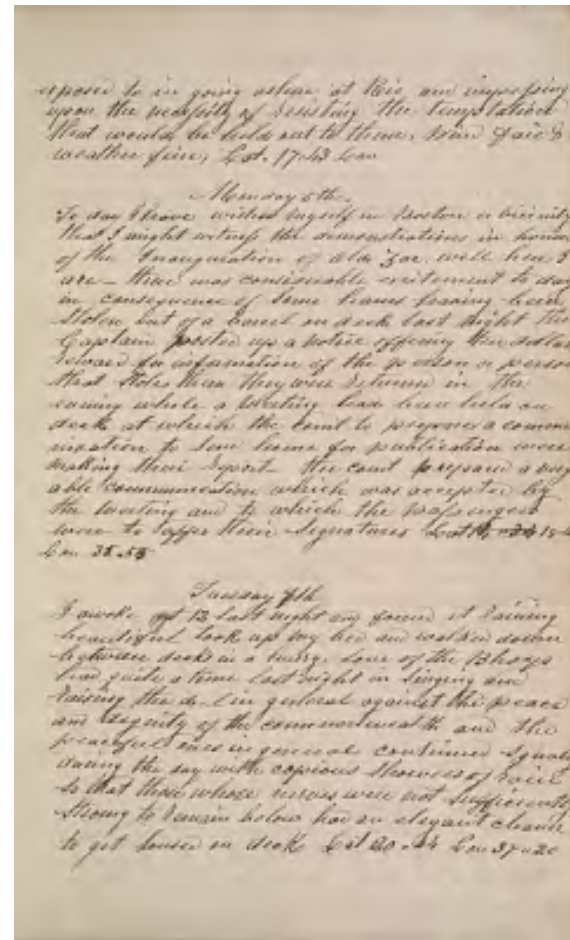 exposed to in going ashore at Rio and impressing
upon the necessity of resisting the temptation
that would be held out to them. Wind fair &
weather fine, Lat. 17-43 Lon
Monday 5th.
To day I have wished myself in Boston or vicinity
that I might witness the demonstrations in honor
of the Inauguration of Old Zac. well here I
are - there was considerable excitement to day
in consequence of some hams having been
stolen out of a barrel on deck last night the
Captain posted up a notice offering ten dollars
reward for information of the person or persons
that stole them they were returned in the
evening while a meeting had been held on
deck at which the com't to prepare a commu
nication to send home for publication were
making their report the com't prepared a very
able communication which was accepted by
the meeting and to which the passengers
were to affix their signatures Lat
Lon 35-53
Tuesday 6th
I awoke at 12 last night and found it raining
beautiful took up my bed and walked down
between decks in a hurry. Some of the B'hoys
had quite a time last night in singing and
raising the d-l in general against the peace
and dignity of the commonwealth and the
peaceful ones in general continued squalls
during the day with copious showers of rain
so that those whose nerves were not sufficiently
strong to remain below had an elegant chance
to get soused on deck Lat 20-24 Lon 37-20